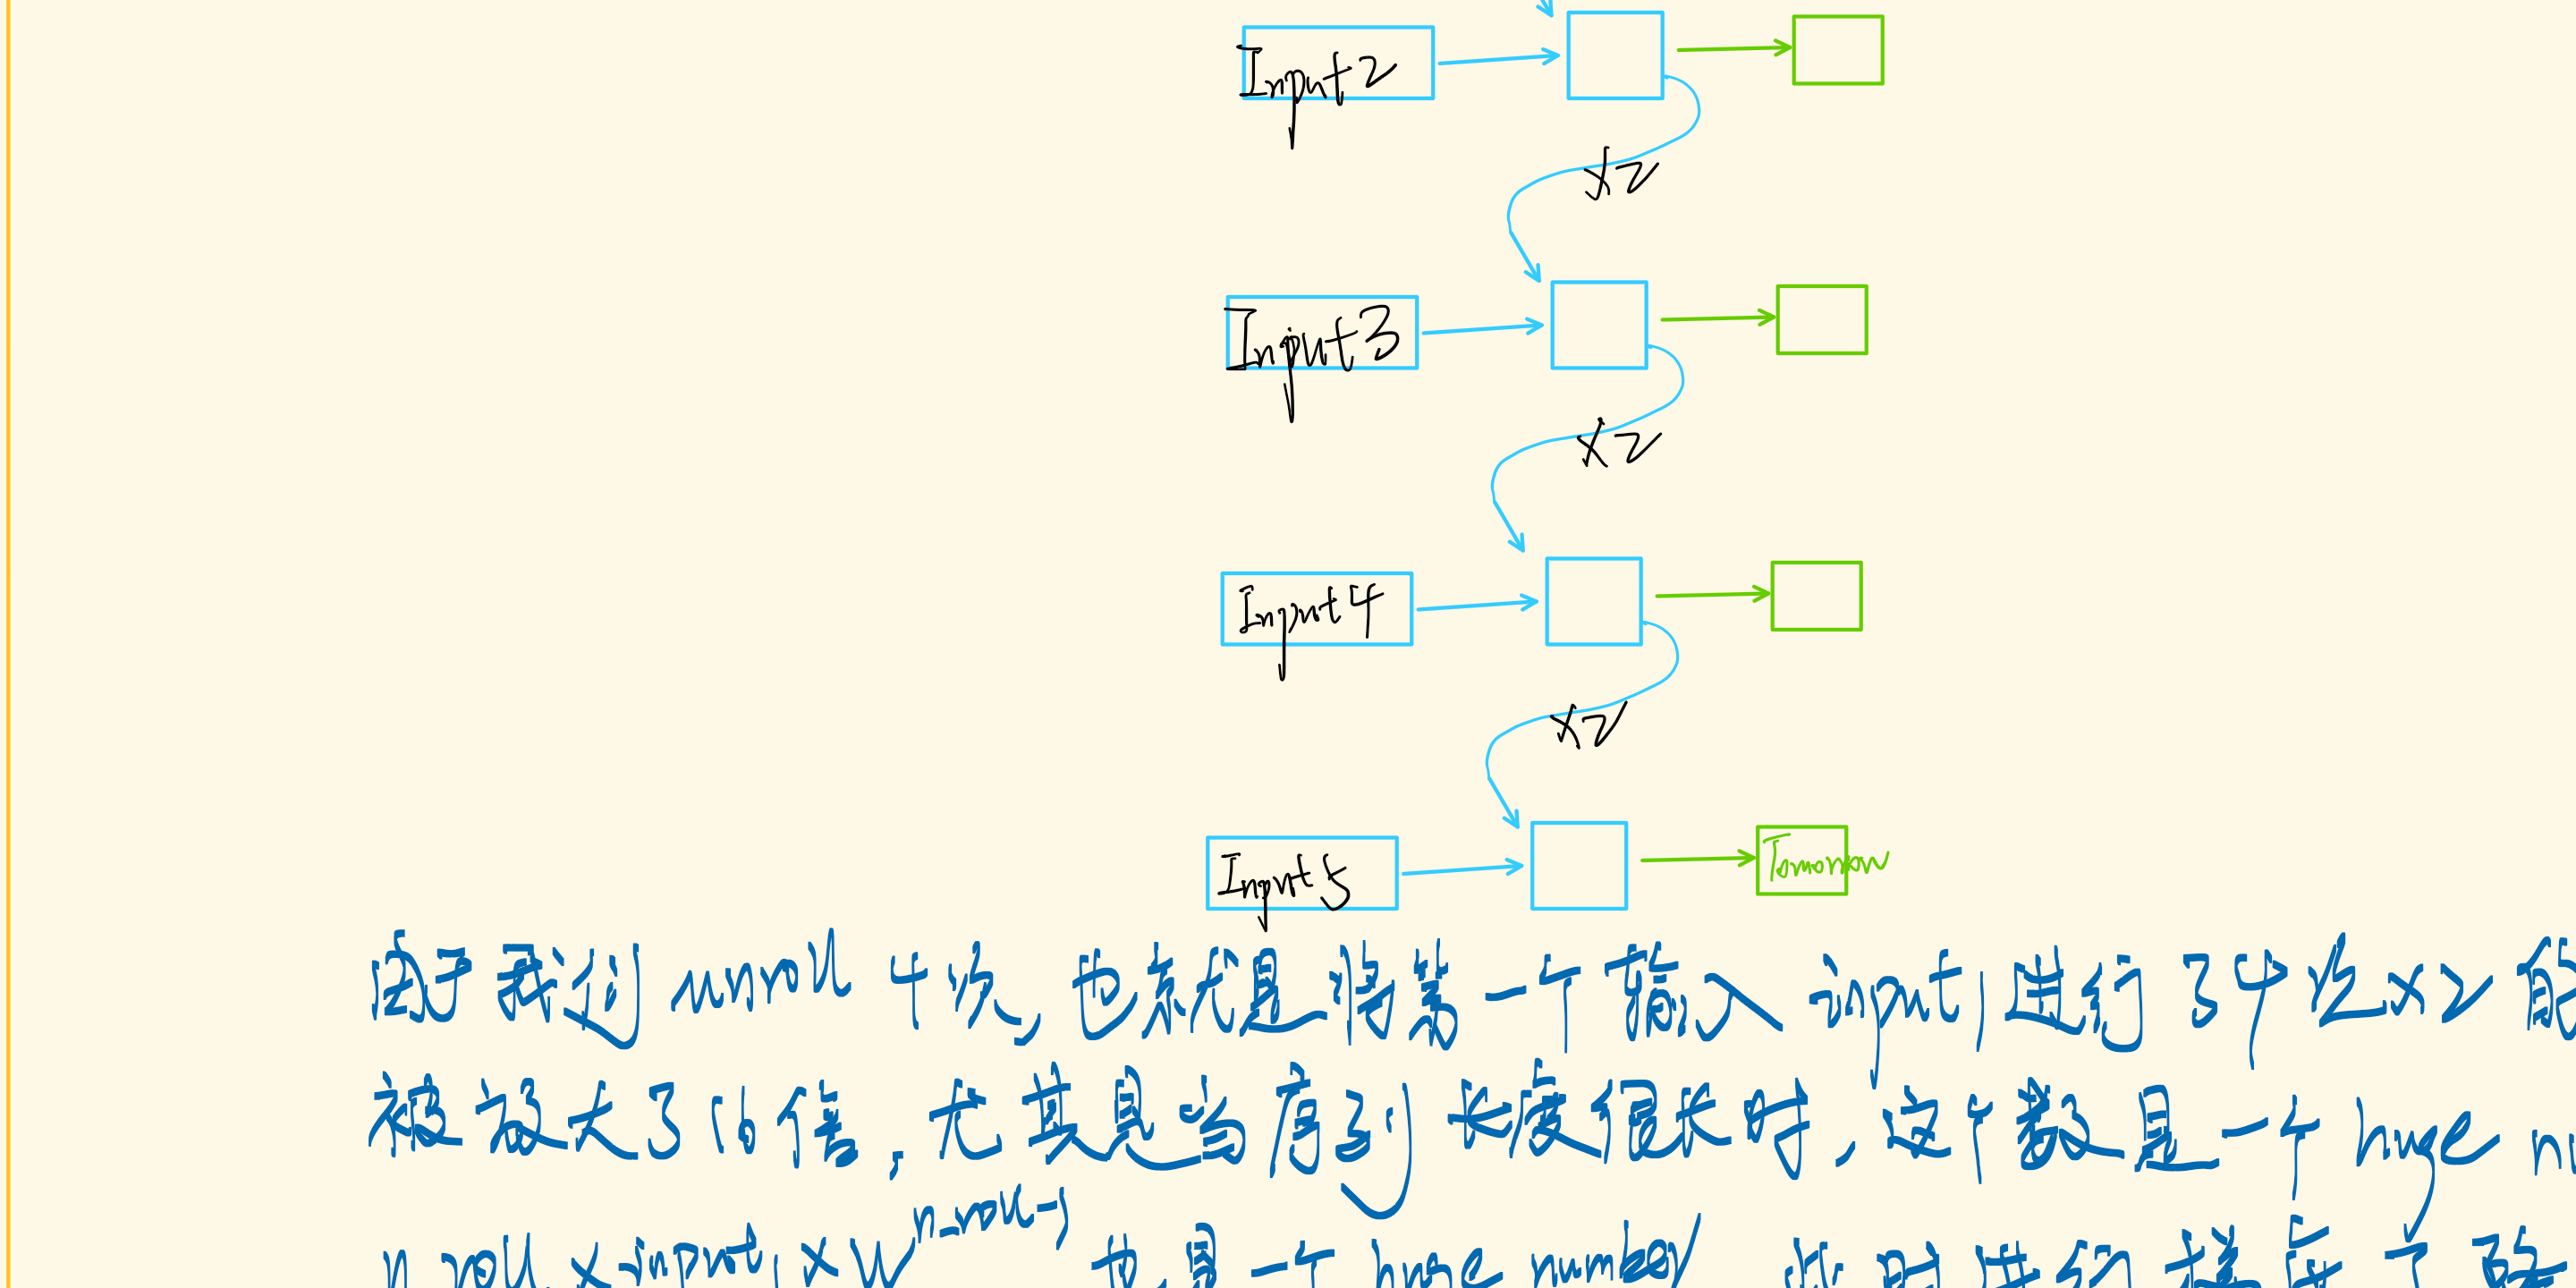 Input2
x2
Input3
x2
Input4
x2
Input5
Tomorrow
由于我们 unroll 4次, 也就是将第一个输入 input1进行了4次x2
被放大了16倍, 尤其是当序列长度很长时, 这个数是一个 huge
n_roll x input1 x W^n_roll-1 也是一个 huge number